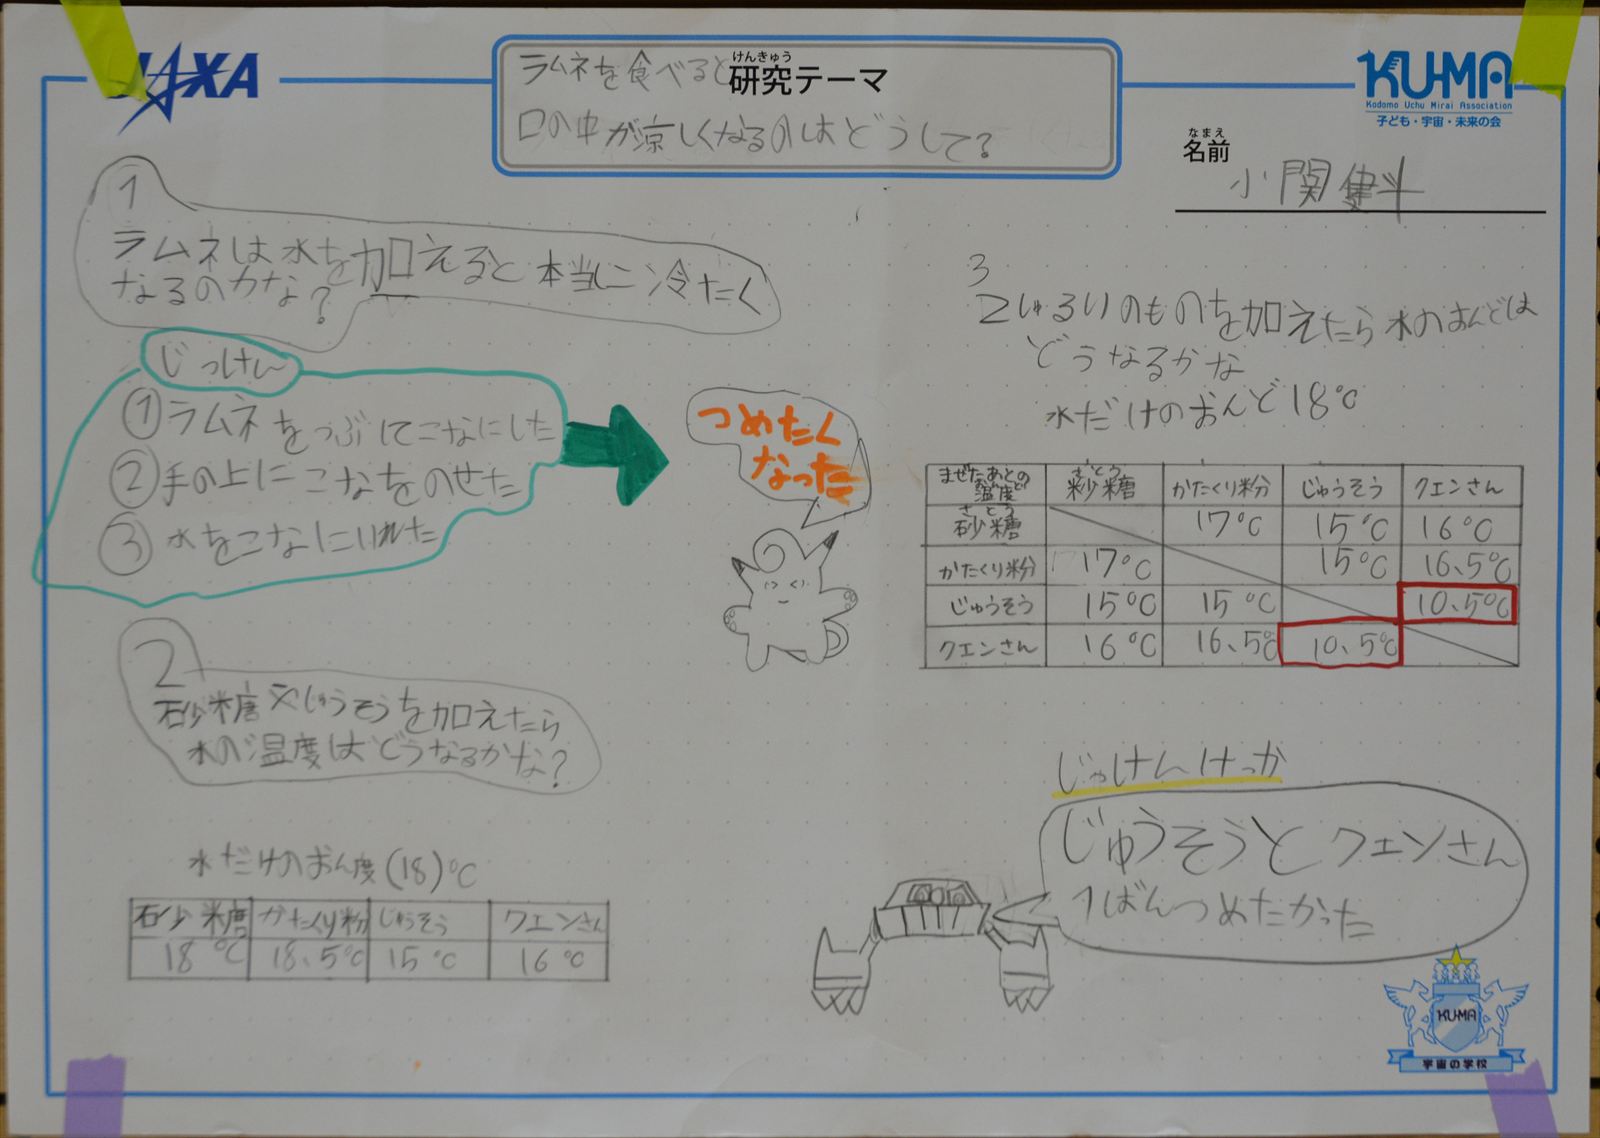 JAXA
けんきゅう
研究テーマ
ラムネを食べると
口の中が涼しくなるのはどうして?
KU-MA
Kodomo Uchu Mirai Association
子ども・宇宙・未来の会
なまえ
名前
小関健斗
1
ラムネは水を加えると本当に冷たく
なるのかな?
じっけん
①ラムネをつぶしてこなにした
②手の上にこなをのせた
③水をこなにいれた
つめたく
なった
2
砂糖やじゅうそうを加えたら
水の温度はどうなるかな?
水だけのおん度(18)℃
砂糖 かたくり粉 じゅうそう クエンさん
18℃ 18.5℃ 15℃ 16℃
3
2しゅるいのものを加えたら水のおんどは
どうなるかな
水だけのおんど18℃
まぜたあとの温度 砂糖 かたくり粉 じゅうそう クエンさん
さとう
砂糖 17℃ 15℃ 16℃
かたくり粉 17℃ 15℃ 16.5℃
じゅうそう 15℃ 15℃ 10.5℃
クエンさん 16℃ 16.5℃ 10.5℃
じっけんけっか
じゅうそうとクエンさん
1ばんつめたかった
KU-MA
宇宙の学校